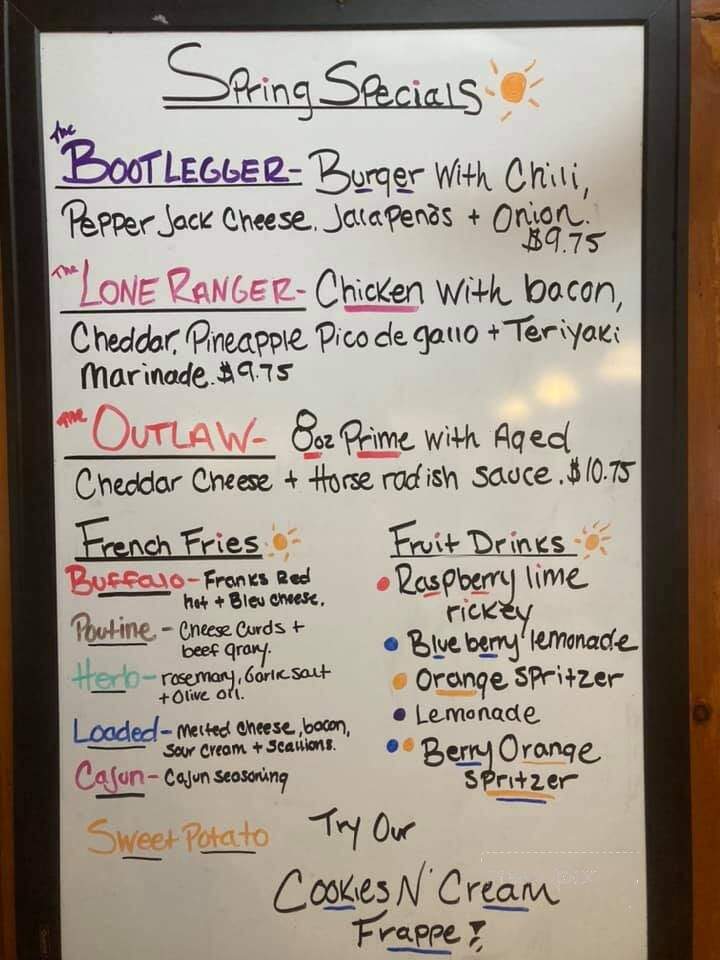 Spring Specials
The BOOTLEGGER- Burger With Chili,
Pepper Jack Cheese, Jalapenos + Onion.
$9.75
The LONE RANGER- Chicken with bacon,
Cheddar, Pineapple Pico de gallo + Teriyaki
Marinade. $9.75
The OUTLAW- 8oz Prime with Aged
Cheddar Cheese + Horse radish sauce. $10.75
French Fries
Buffalo- Franks Red
hot + Bleu cheese.
Poutine - Cheese Curds +
beef gravy.
Herb- rosemary, Garlic salt
+ Olive oil.
Loaded- Melted cheese, bacon,
Sour Cream + Scallions.
Cajun- Cajun seasoning
Sweet Potato
Fruit Drinks
Raspberry lime
rickey
Blueberry lemonade
Orange Spritzer
Lemonade
Berry Orange
Spritzer
Try Our
Cookies N' Cream
Frappe!